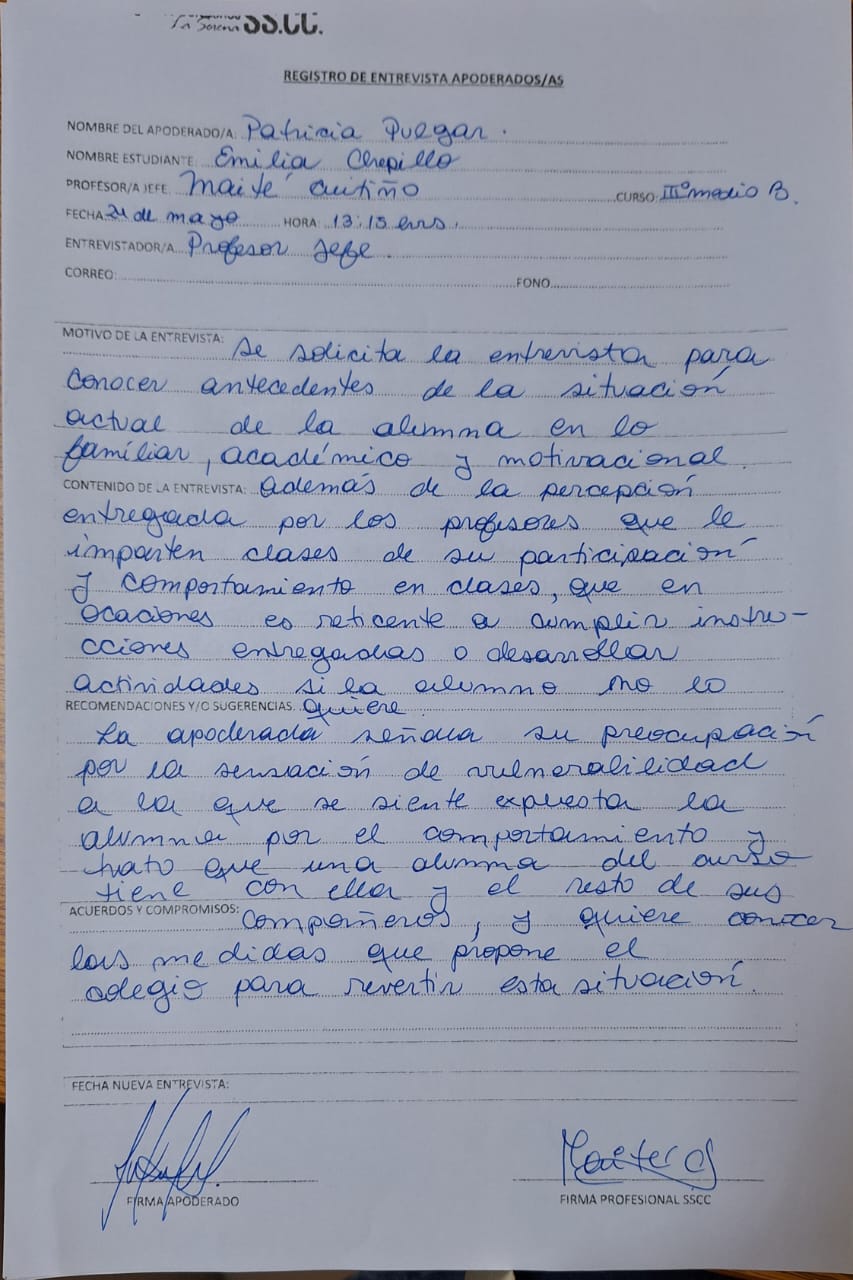 La Serena SS.CC.
REGISTRO DE ENTREVISTA APODERADOS/AS
NOMBRE DEL APODERADO/A: Patricia Pulgar.
NOMBRE ESTUDIANTE: Emilia Chepillo
PROFESOR/A JEFE: Maité CURSO: III° medio B.
FECHA: 21 de mayo HORA: 13:15 hrs.
ENTREVISTADOR/A: Profesor Jefe.
CORREO: FONO
MOTIVO DE LA ENTREVISTA: Se solicita la entrevista para
conocer antecedentes de la situación
actual de la alumna en lo
familiar, académico y motivacional.
CONTENIDO DE LA ENTREVISTA: además de la percepción
entregada por los profesores que le
imparten clases de su participación
y comportamiento en clases, que en
ocaciones es reticente a cumplir instru-
cciones entregadas o desarrollar
actividades si la alumna no lo
RECOMENDACIONES Y/O SUGERENCIAS: quiere.
La apoderada señala su preocupación
por la sensación de vulnerabilidad
a la que se siente expuesta la
alumna por el comportamiento y
trato que una alumna del curso
tiene con ella y el resto de sus
ACUERDOS Y COMPROMISOS: compañeros, y quiere conocer
las medidas que propone el
colegio para revertir esta situación.
FECHA NUEVA ENTREVISTA:
FIRMA APODERADO FIRMA PROFESIONAL SSCC